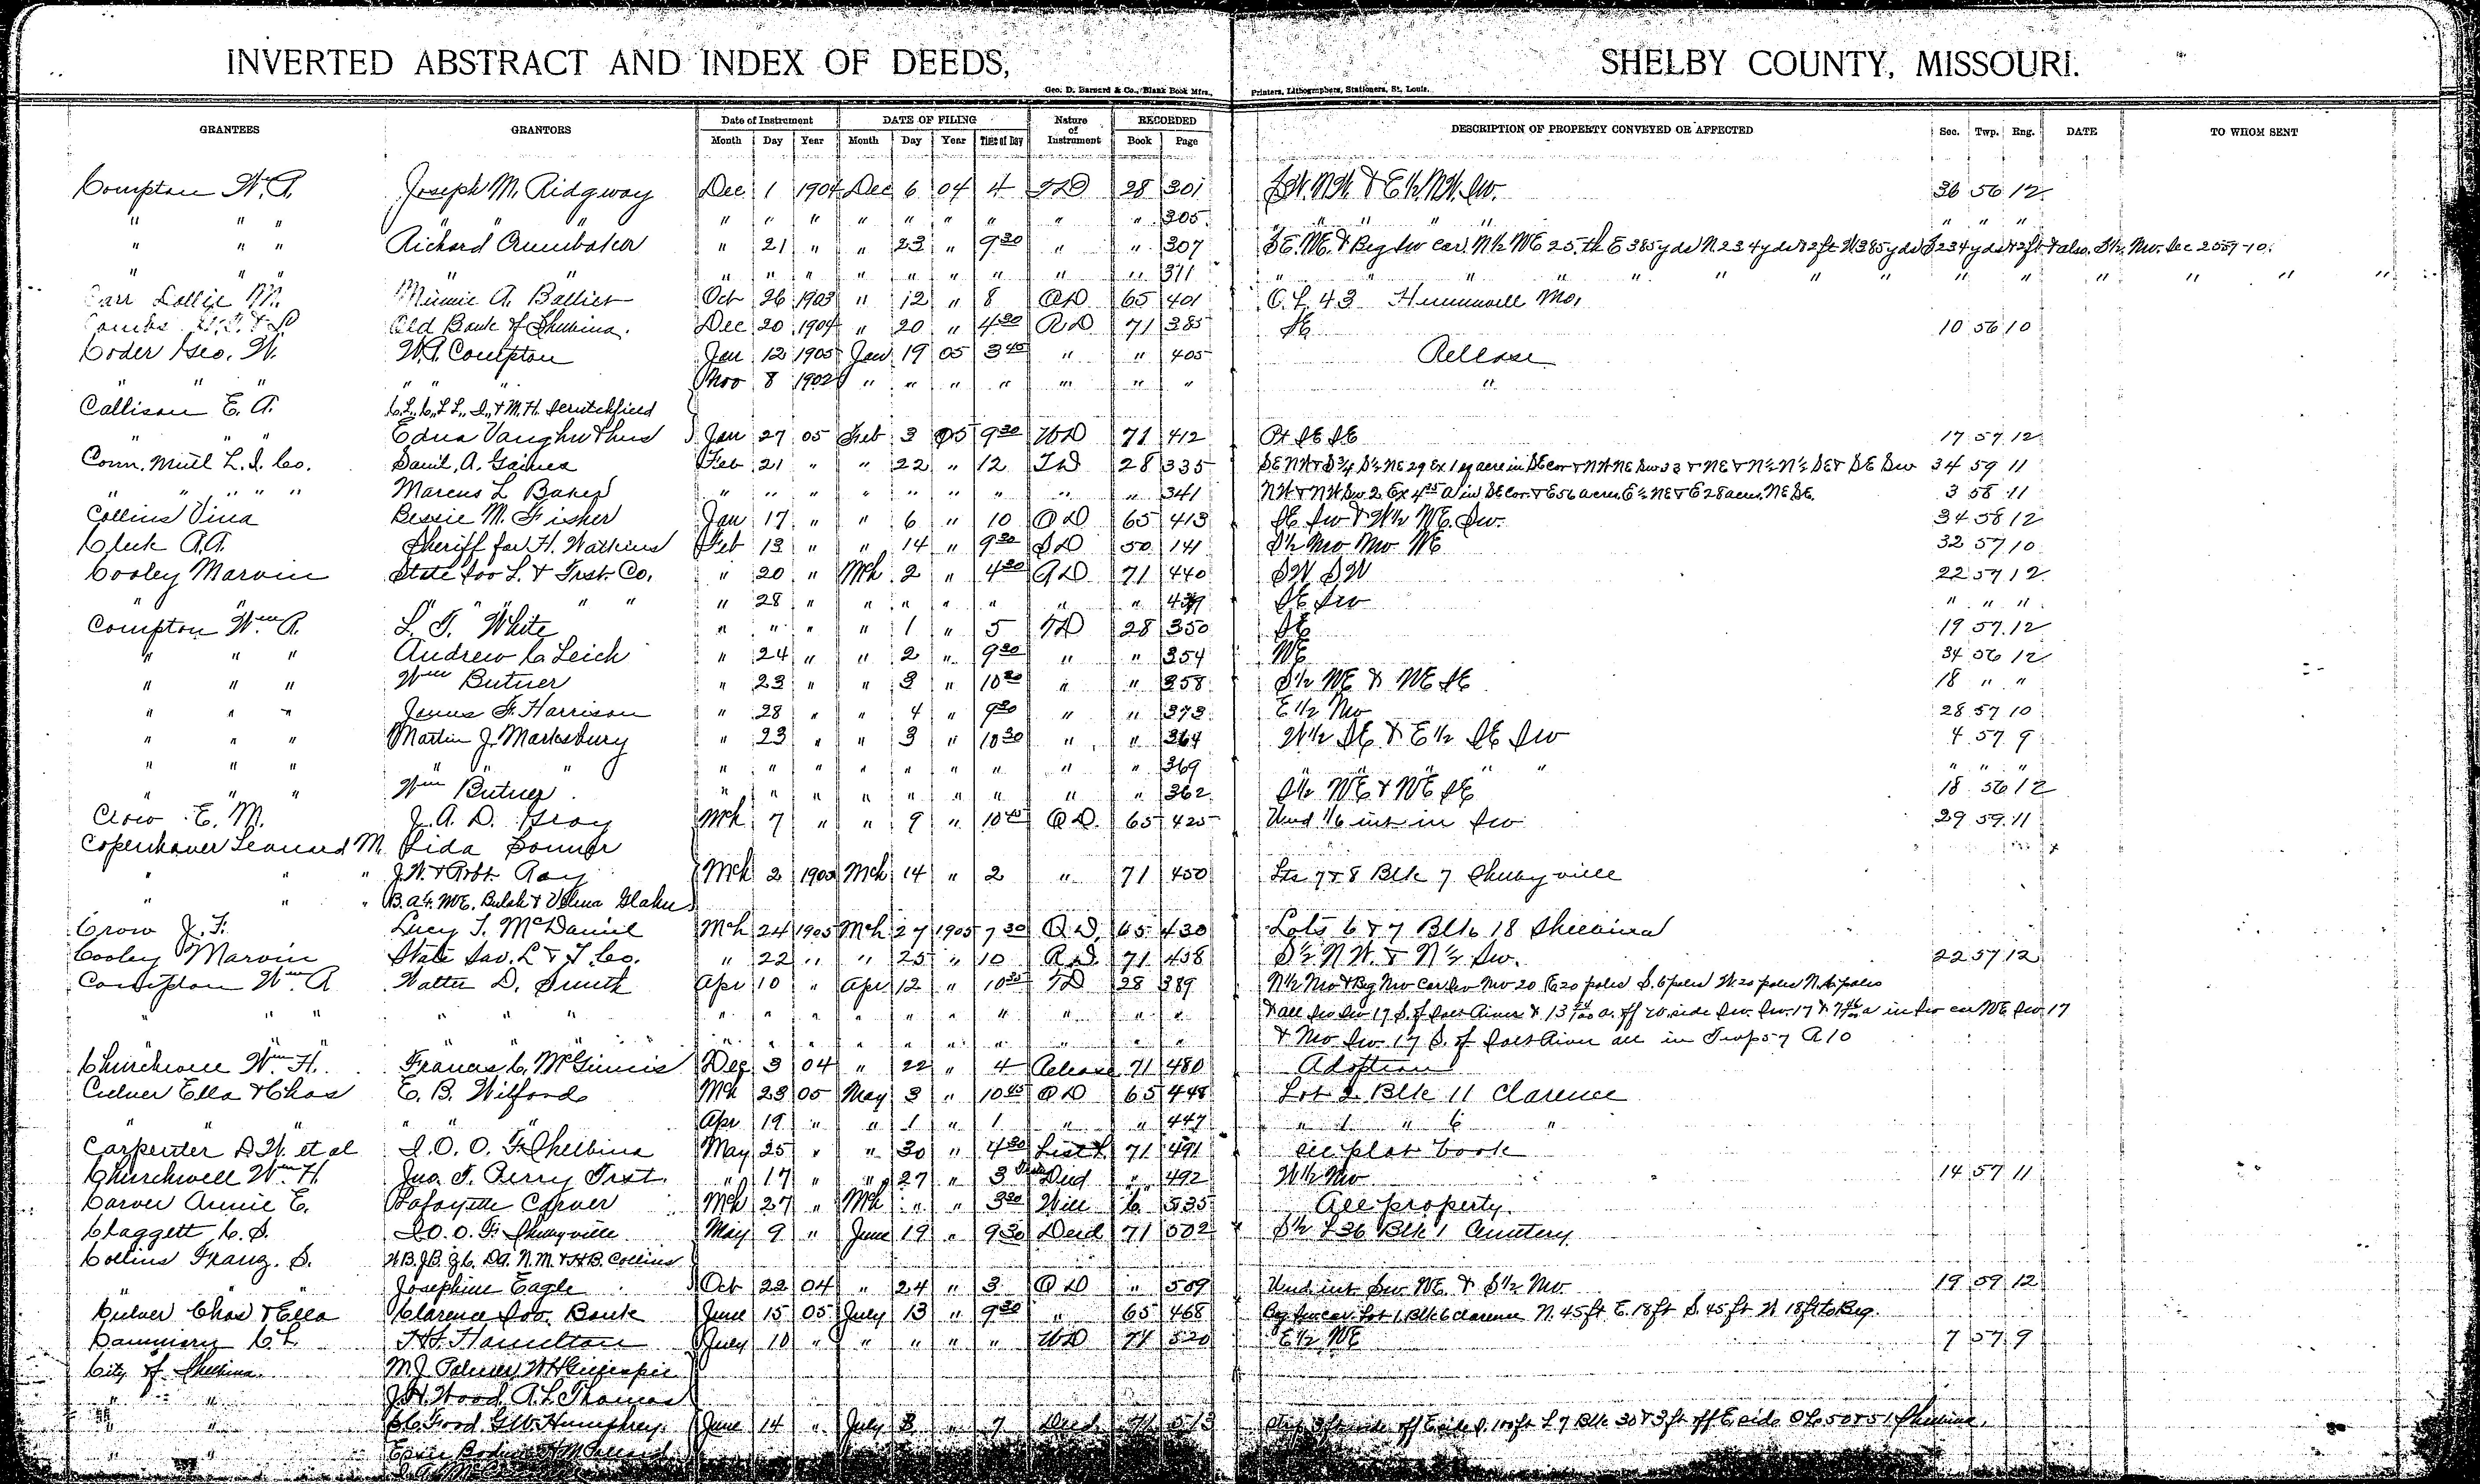 INVERTED ABSTRACT AND INDEX OF DEEDS, SHELBY COUNTY, MISSOURI.
Geo. D. Barnard & Co., Blank Book Mfrs., Printers, Lithographers, Stationers, St. Louis.
GRANTEES GRANTORS Date of Instrument DATE OF FILING Nature of Instrument RECORDED DESCRIPTION OF PROPERTY CONVEYED OR AFFECTED Sec. Twp. Rng. DATE TO WHOM SENT
Month Day Year Month Day Year Time of Day Book Page
Compton W. A. Joseph M. Ridgway Dec 1 1904 Dec 6 04 4 TD 28 301 SW. NW. & E½ NW. Sw. 36 56 12
" " " " " " " " " " " " " " 305 " " " " " "
" " " Richard Crumbaker " 21 " " 23 " 9 30 " " 307 SE. NE. & Beg Sw cor. N½ NE 25. th E 385 yds N 234 yds & 2 ft W 385 yds S 234 yds & 2 ft & also. S½ Nw. Sec 25 57-10.
" " " " " " " " " " " " " " 311 " " " " " " " " " " " "
Carr Lollie M. Minnie A. Ballier Oct 26 1903 " 12 " 8 QD 65 401 O. L. 43 Hunnewell Mo,
Combs Old Bank of Shelbina. Dec 20 1904 " 20 " 4 30 RD 71 385 SE 10 56 10
Coder Geo. W. W. A. Compton Jan 12 1905 Jan 19 05 3 45 " " 405 Release
" " " " " " Nov 8 1902 " " " " " " " "
Callison E. A. & M. H. Scrutchfield
" " " Edna Vaughn & hus Jan 27 05 Feb 3 05 9 30 WD 71 412 Pt SE SE 17 57 12
Conn. Mutl L. I. Co. Saml. A. Gaines Feb 21 " " 22 " 12 TD 28 335 SE NW & S¾ S½ NE 29 Ex 1 sq acre in SE cor & NW NE Sw 33 & NE & N½ N½ SE & SE Sw 34 59 11
" " " " " Marcus L Baker " " " " " " " " " 341 NW & NW Sw 2 Ex 4 25 a in SE Cor. & E 56 acres E½ NE & E 28 acres NE SE. 3 58 11
Collins Vina Bessie M. Fisher Jan 17 " " 6 " 10 QD 65 413 SE Sw & W½ NE. Sw. 34 58 12
Cleek A. A. Sheriff for H. Watkins Feb 13 " " 14 " 9 30 SD 50 141 S½ Nw Nw NE 32 57 10
Cooley Marvin State Sav L. & Trst. Co. " 20 " Mch 2 " 4 30 RD 71 440 SW SW 22 57 12
" " " " " " 28 " " " " " " " 439 SE Sw " " "
Compton Wm A. L. T. White " " " " 1 " 5 TD 28 350 SE 19 57 12
" " " Andrew C. Leich " 24 " " 2 " 9 30 " " 354 NE 34 56 12
" " " Wm Butner " 23 " " 3 " 10 30 " " 358 S½ NE & NE SE 18 " "
" " " James F. Harrison " 28 " " 4 " 9 30 " " 373 E½ Nw 28 57 10
" " " Martin J. Marksbury " 23 " " 3 " 10 30 " " 364 W½ SE & E½ SE Sw 4 57 9
" " " " " " " " " " " " " " " 369 " " " " " " " "
" " " Wm Butner " " " " " " " " " 362 S½ NE & NE SE 18 56 12
Crow E. M. J. A. D. Gray Mch 7 " " 9 " 10 45 QD. 65 425 Und 1/6 int in Sw 29 59 11
Copenhaver Leonard M. Lida Conner
" " " J. W. & Robt. Ray Mch 2 1905 Mch 14 " 2 " 71 450 Lts 7 & 8 Blk 7 Shelbyville
" " " Bulah & Velma Glahn
Crow J. F. Lucy T. McDaniel Mch 24 1905 Mch 27 1905 7 30 QD. 65 430 Lots 6 & 7 Blk 18 Shelbina
Cooley Marvin State Sav. L & T. Co. " 22 " " 25 " 10 RD. 71 458 S½ NW. & N½ Sw. 22 57 12
Compton Wm A Walter D. Smith Apr 10 " Apr 12 " 10 30 TD 28 389 N½ Nw & Beg Nw cor Sw Nw 20 E 20 poles S. 6 poles W. 20 poles N. 6 poles
" " " " " " " " " " " " " " " " & all Sw Sw 17 S. of Salt River & 13 a. off W side Sw. 17 & 7 a in Sw cor NE Sw 17
" " " " " " " " " " & Nw Sw 17 S. of Salt River all in Twp 57 R 10
Churchwell Wm. H. Francis C. McGinnis Dec 3 04 " 22 " 4 Release 71 480 Adoption
Culver Ella & Chas E. B. Wilford Mch 23 05 May 3 " 10 45 QD 65 448 Lot 2 Blk 11 Clarence
" " " " " Apr 19 " " 1 " 1 " " 447 " 1 " 6 "
Carpenter D. W. et al I. O. O. F. Shelbina May 25 " " 30 " 4 30 71 491 See plat book
Churchwell Wm. H. Jno. T. Perry Trst. " 17 " " 27 " 3 Deed " 492 W½ Nw 14 57 11
Carver Annie E. Lafayette Carver Mch 27 " Mch " " 3 30 Will 6 535 All property.
Claggett C. S. I. O. O. F. Shelbyville May 9 " June 19 " 9 30 Deed 71 502 S½ L 36 Blk 1 Cemetery
Collins Franz. S. W. B. J. B. D. A. N. M. & H. B. Collins
" " Josephine Eagle Oct 22 04 " 24 " 3 QD " 509 Und int Sw NE. & S½ Nw 19 59 12
Culver Chas & Ella Clarence Sav. Bank June 15 05 July 13 " 9 30 " 65 468 Beg Sw cor. Lot 1. Blk 6 Clarence N. 45 ft E. 18 ft S. 45 ft W 18 ft to Beg.
C. L. Hamilton July 10 " " " " " WD 71 520 E½ NE 7 57 9
City of Shelbina. M. J. Palmer W H Gillespie
" " J. H. Wood, A. L. Thomas
" " C. C. Ford. G. W. Humphrey. June 14 " July 3 " 7 Deed 71 513 Strip 3 ft wide off E side S. 100 ft L 7 Blk 30 & 3 ft off E side O Ls 50 & 51 Shelbina.
" "